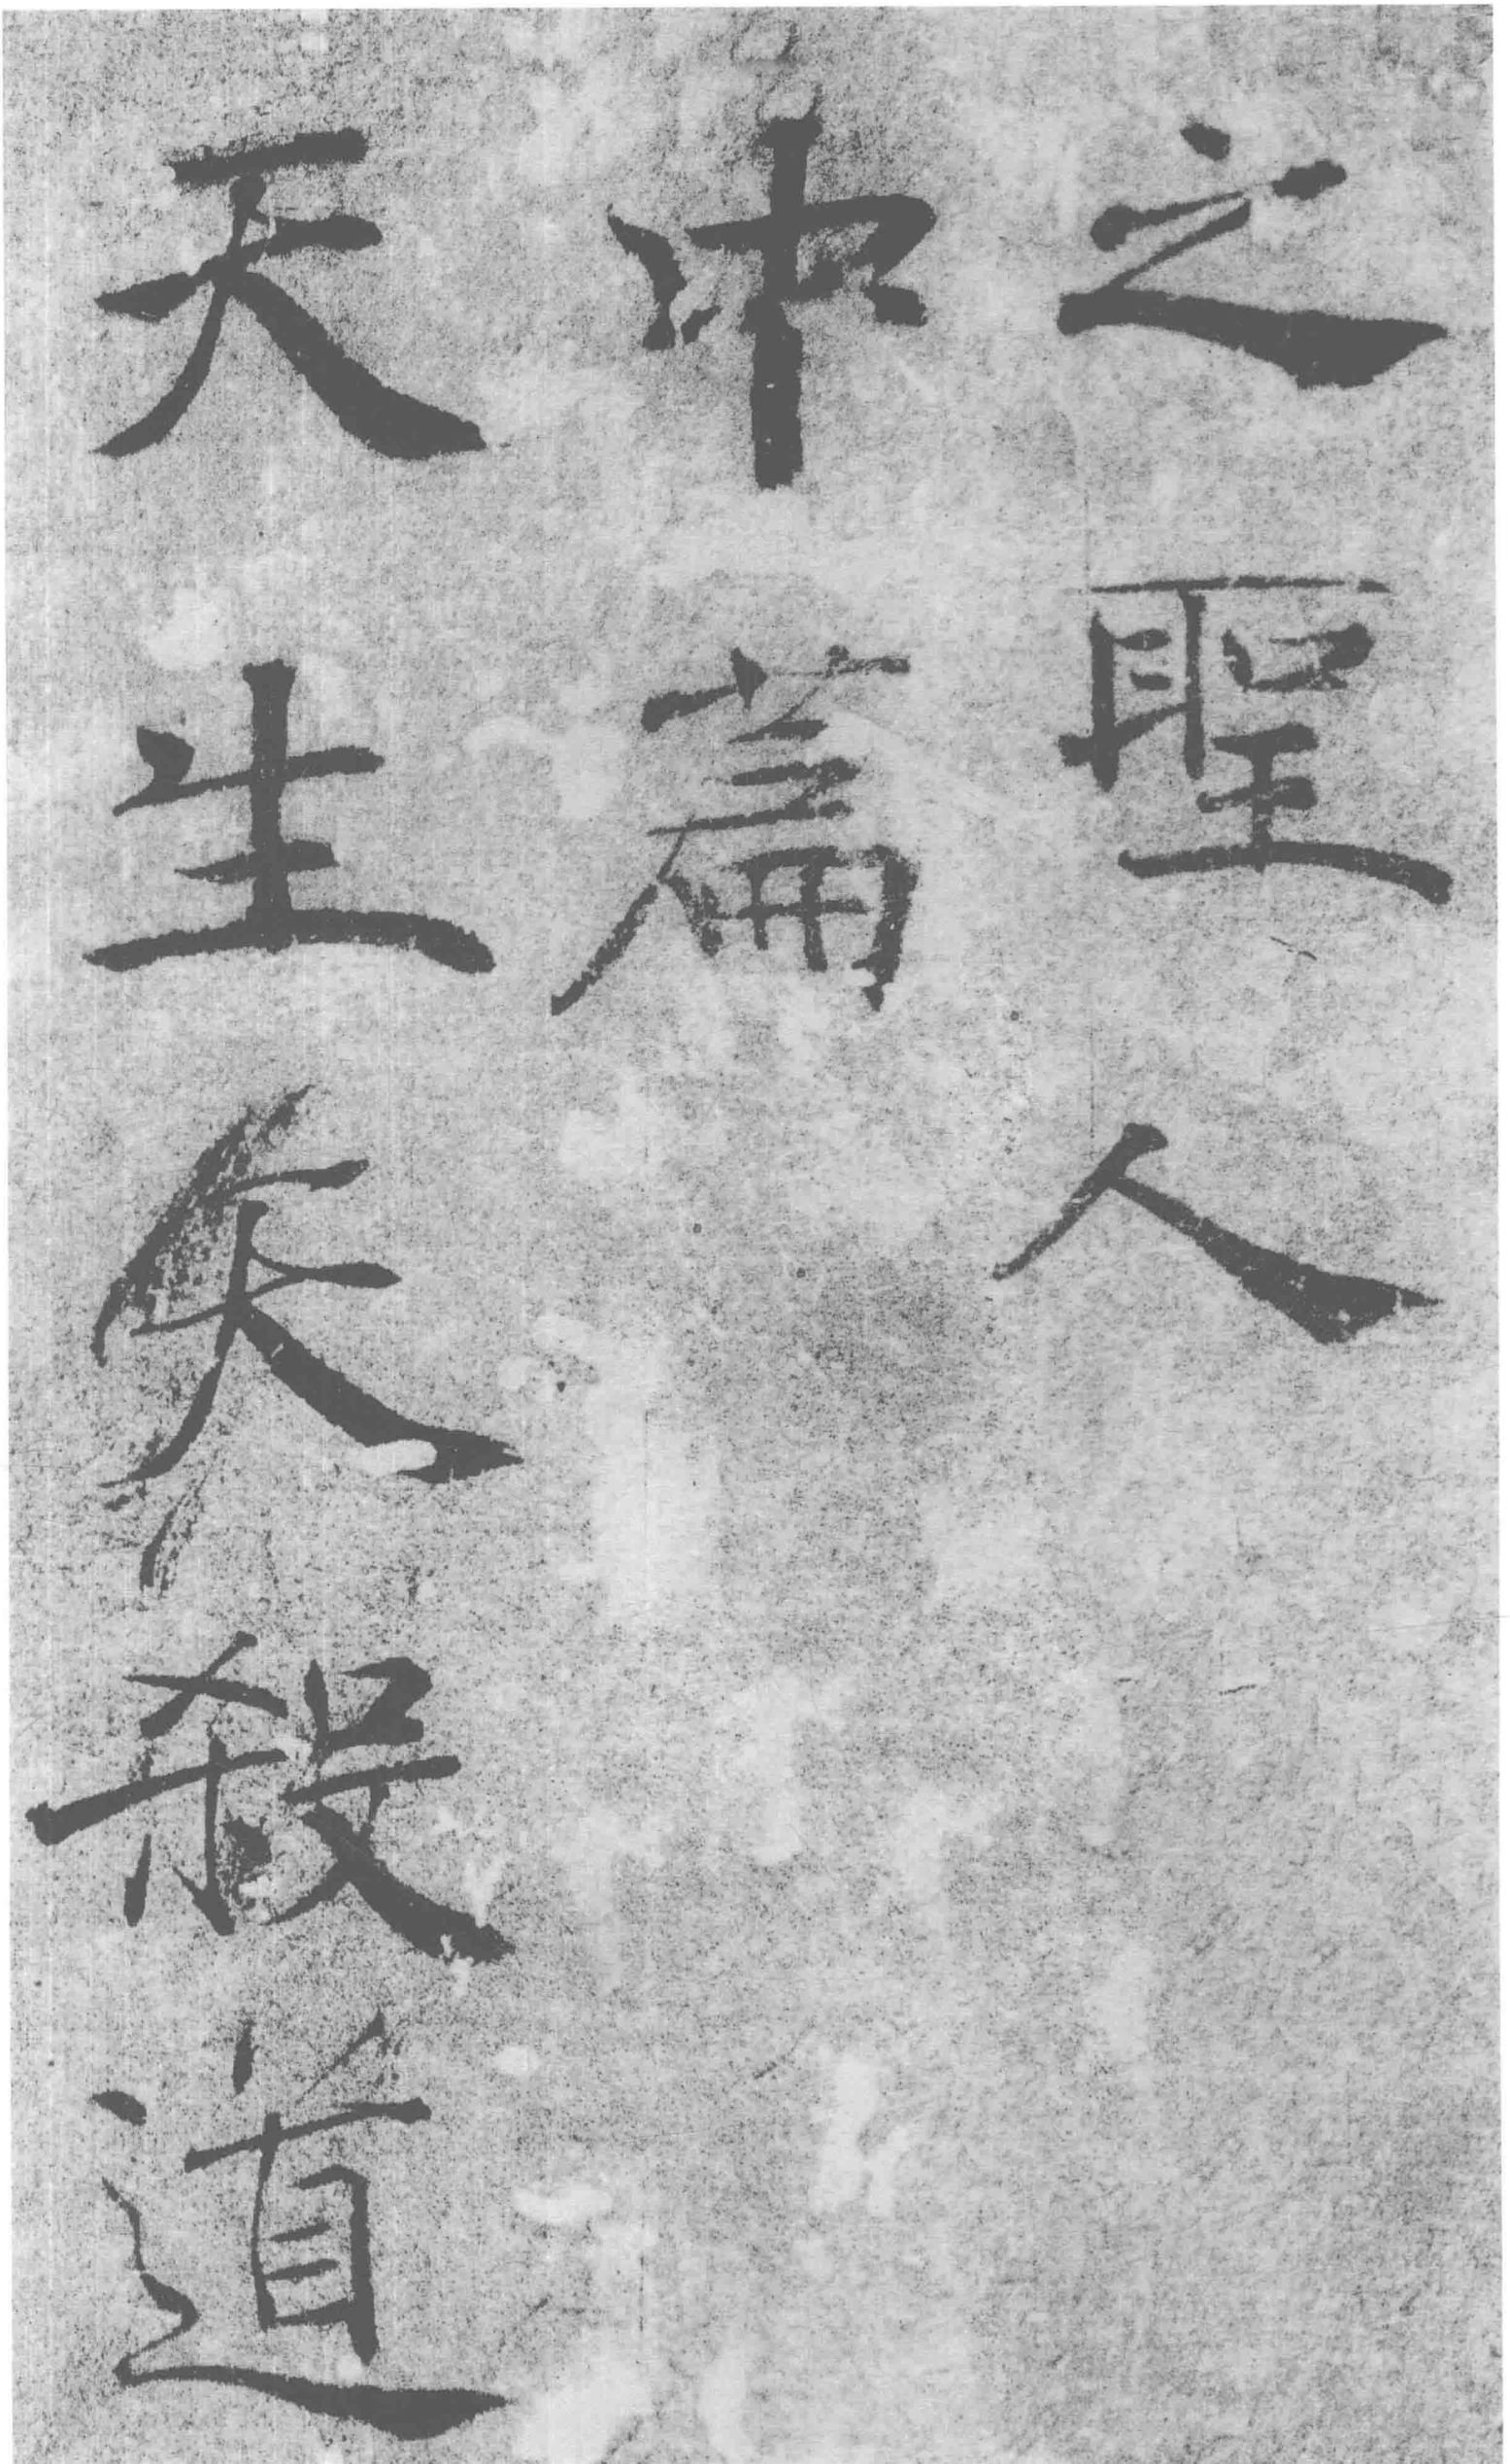 之聖人
中篇
天生天殺道